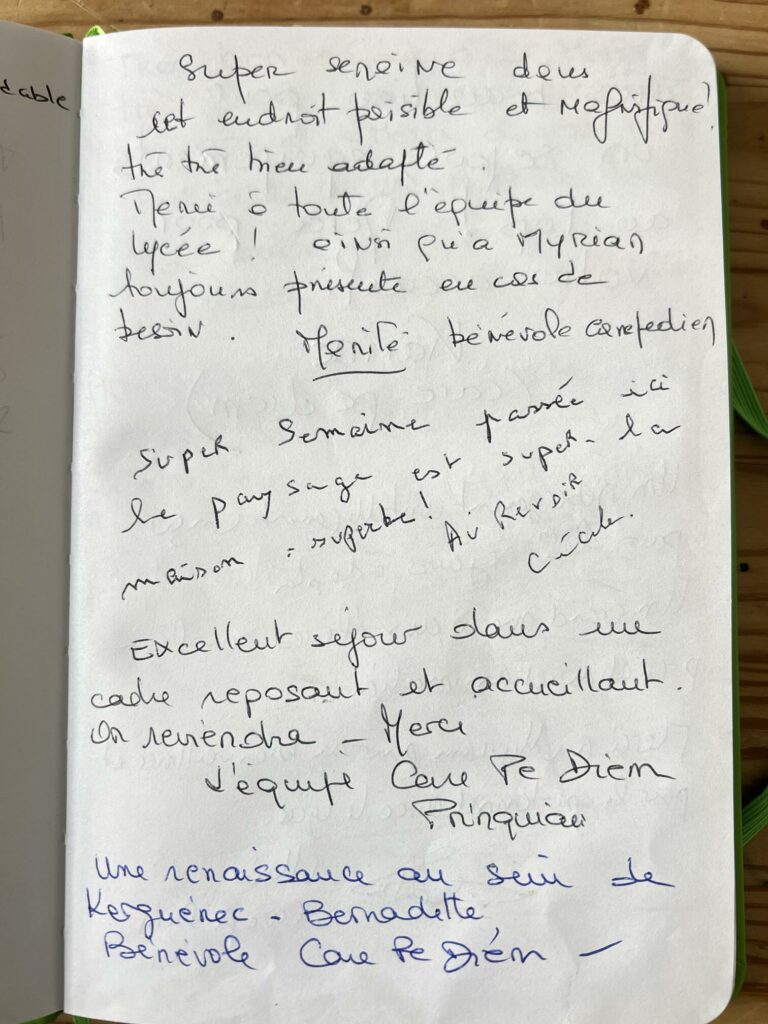 dable
Super semaine dans
cet endroit paisible et magnifique!
trè trè bien adapté.
Merci à toute l'équipe du
lycée! ainsi qu'a Myrian
toujours présente en cas de
besoin. bénévole Carepedien
Super Semaine passée ici
le paysage est super. la
maison superbe! Au Revoir
Cécile.
Excellent séjour dans un
cadre reposant et accueillant.
On reviendra - Merci
L'équipe Care Pe Diem
Prinquiau
Une renaissance au sein de
Kerguénec - Bernadette
Bénévole Care Pe Diém -